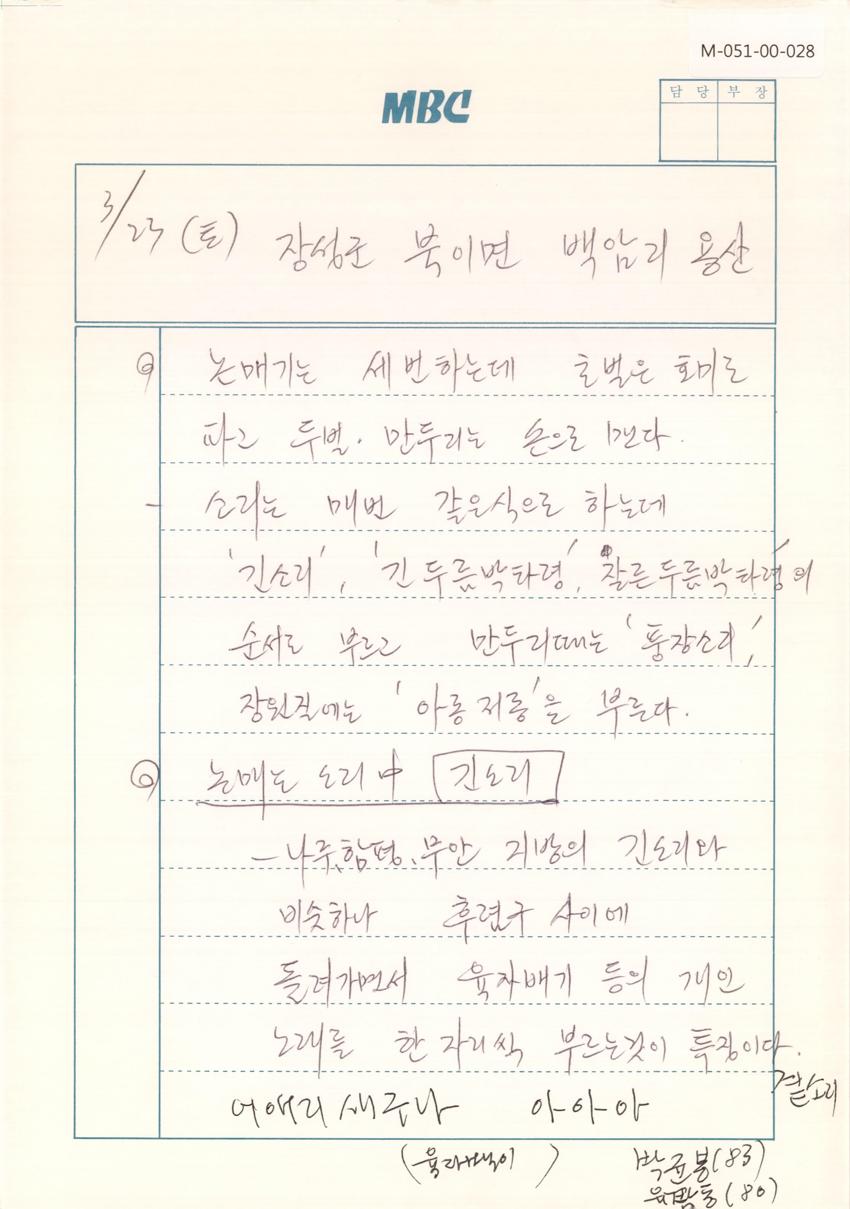 M-051-00-028
MBC
담 당 부 장
3/23 (토) 장성군 북이면 백암리 용산
논매기는 세번하는데 초벌은 호미로
파고 두벌. 만두리는 손으로 맨다.
- 소리는 매번 같은식으로 하는데
'긴소리', '긴 두름박타령', 짤른두름박타령'의
순서로 부르고 만두리때는 '풍장소리',
장원질에는 '아롱저롱'을 부른다.
논매는 소리 中 긴소리
- 나주, 함평, 무안 지방의 긴소리와
비슷하나 후렴구 사이에
돌려가면서 육자배기 등의 개인
노래를 한 자리씩 부르는것이 특징이다.
어애리 새구나 아아아
박균봉(83)
(80)